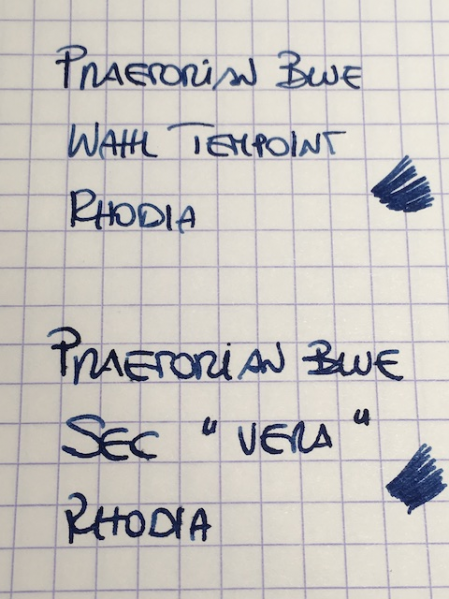 PRAETORIAN BLUE
WAHL TEMPOINT
RHODIA
PRAETORIAN BLUE
SEC "VERA"
RHODIA